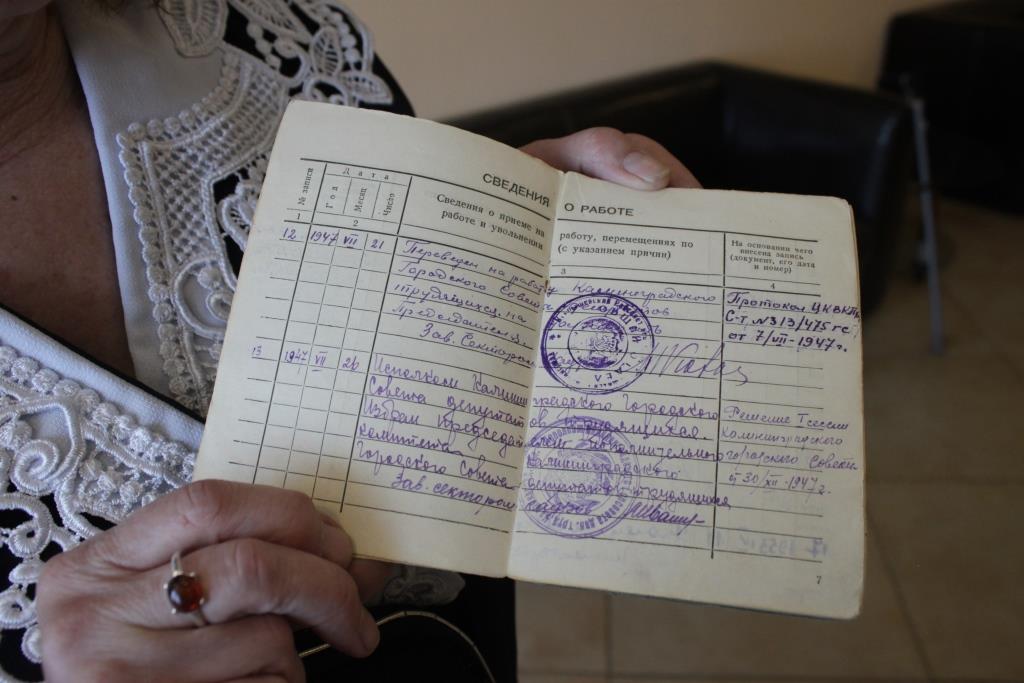 СВЕДЕНИЯ О РАБОТЕ
№ записи
Дата
Год
Месяц
Число
Сведения о приеме на работу, перемещениях по
работе и увольнении (с указанием причин)
На основании чего
внесена запись
(документ, его дата
и номер)
1 2 3 4
12 1947 VII 21 Переведен на работу Калининградского
Городского Совета
трудящихся на
Председателя
Зав. Сектором
Протокол ЦКВКП
С-т. №313/475 гс
от 7/VII-1947г.
13 1947 VII 26 Исполком Калининградского Городского
Совета депутатов трудящихся.
Избран Председателем Исполнительного
комитета Калининградского
Городского Совета депутатов трудящихся
Зав. сектором кадров
Решение I сессии
Калининградского
городского Совета
от 30/XII-1947г.
7